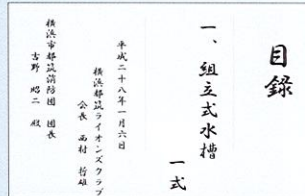 目録
一、組立式水槽
一式
平成二十八年一月六日
横浜都筑ライオンズクラブ
会長 西村 哲雄
横浜市都筑消防団 団長
吉野 昭二 殿